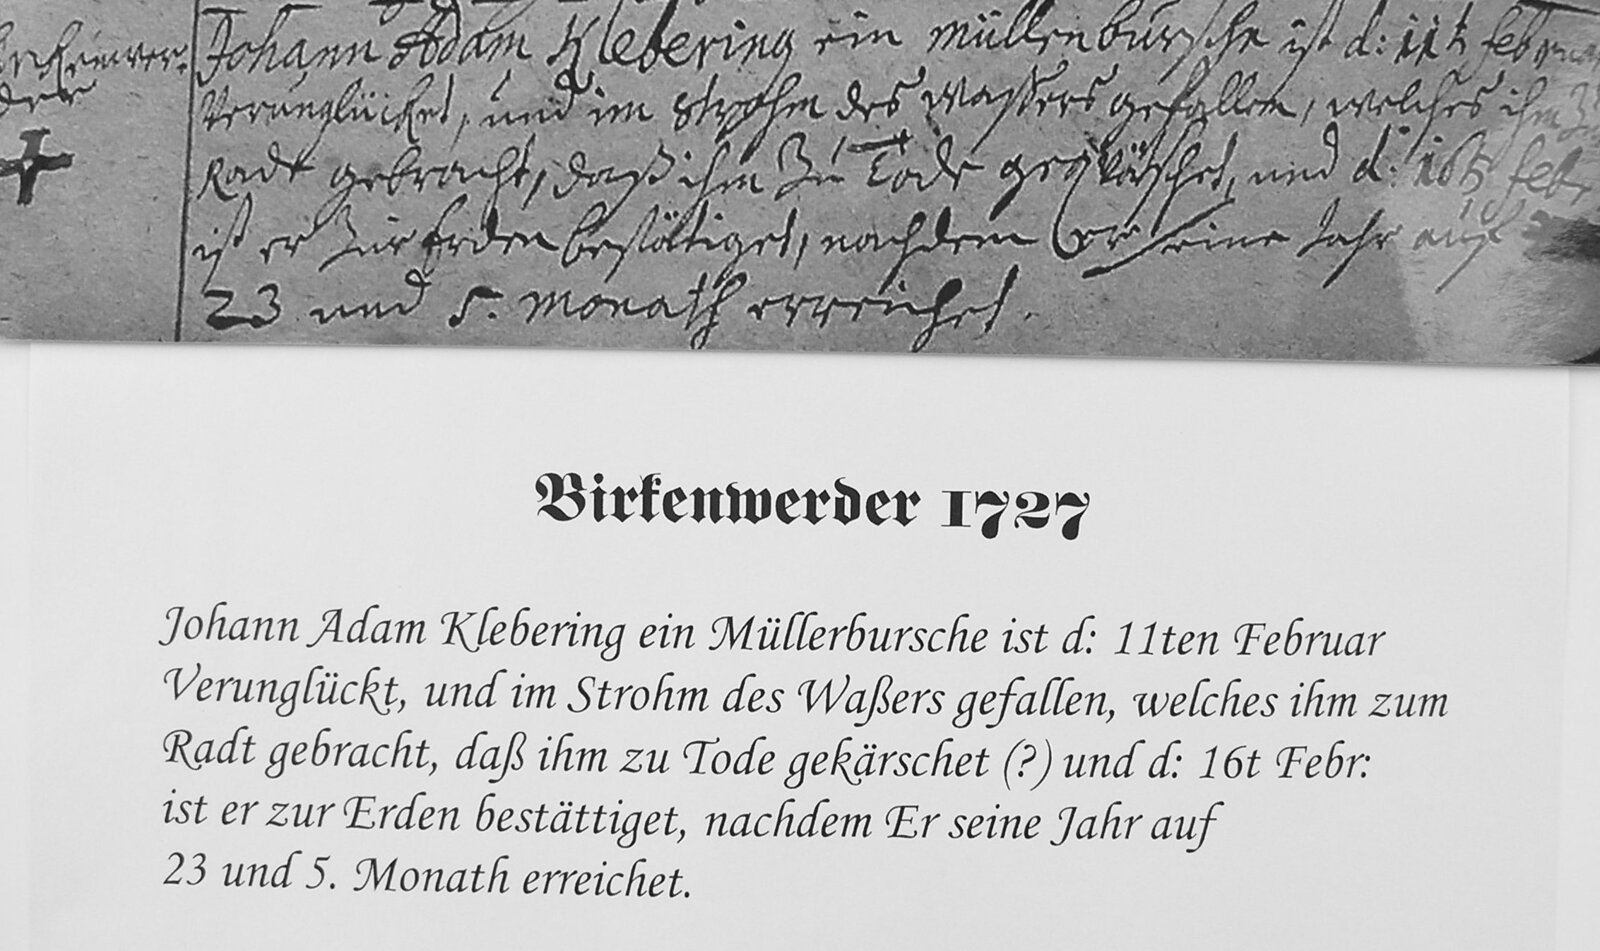 Johann Adam Klebering ein Müllenbursche ist d: 11t Februar
Verunglücket, und im Strohm des Waßers gefallen, welches ihm
der
Radt gebracht, daß ihm zu Tode und d: 16t Feb:
ist er zur Erden bestätiget, nachdem Er seine Jahr auf
23 und 5. Monath erreichet.
Birkenwerder 1727
Johann Adam Klebering ein Müllerbursche ist d: 11ten Februar
Verunglückt, und im Strohm des Waßers gefallen, welches ihm zum
Radt gebracht, daß ihm zu Tode gekärschet (?) und d: 16t Febr:
ist er zur Erden bestättiget, nachdem Er seine Jahr auf
23 und 5. Monath erreichet.